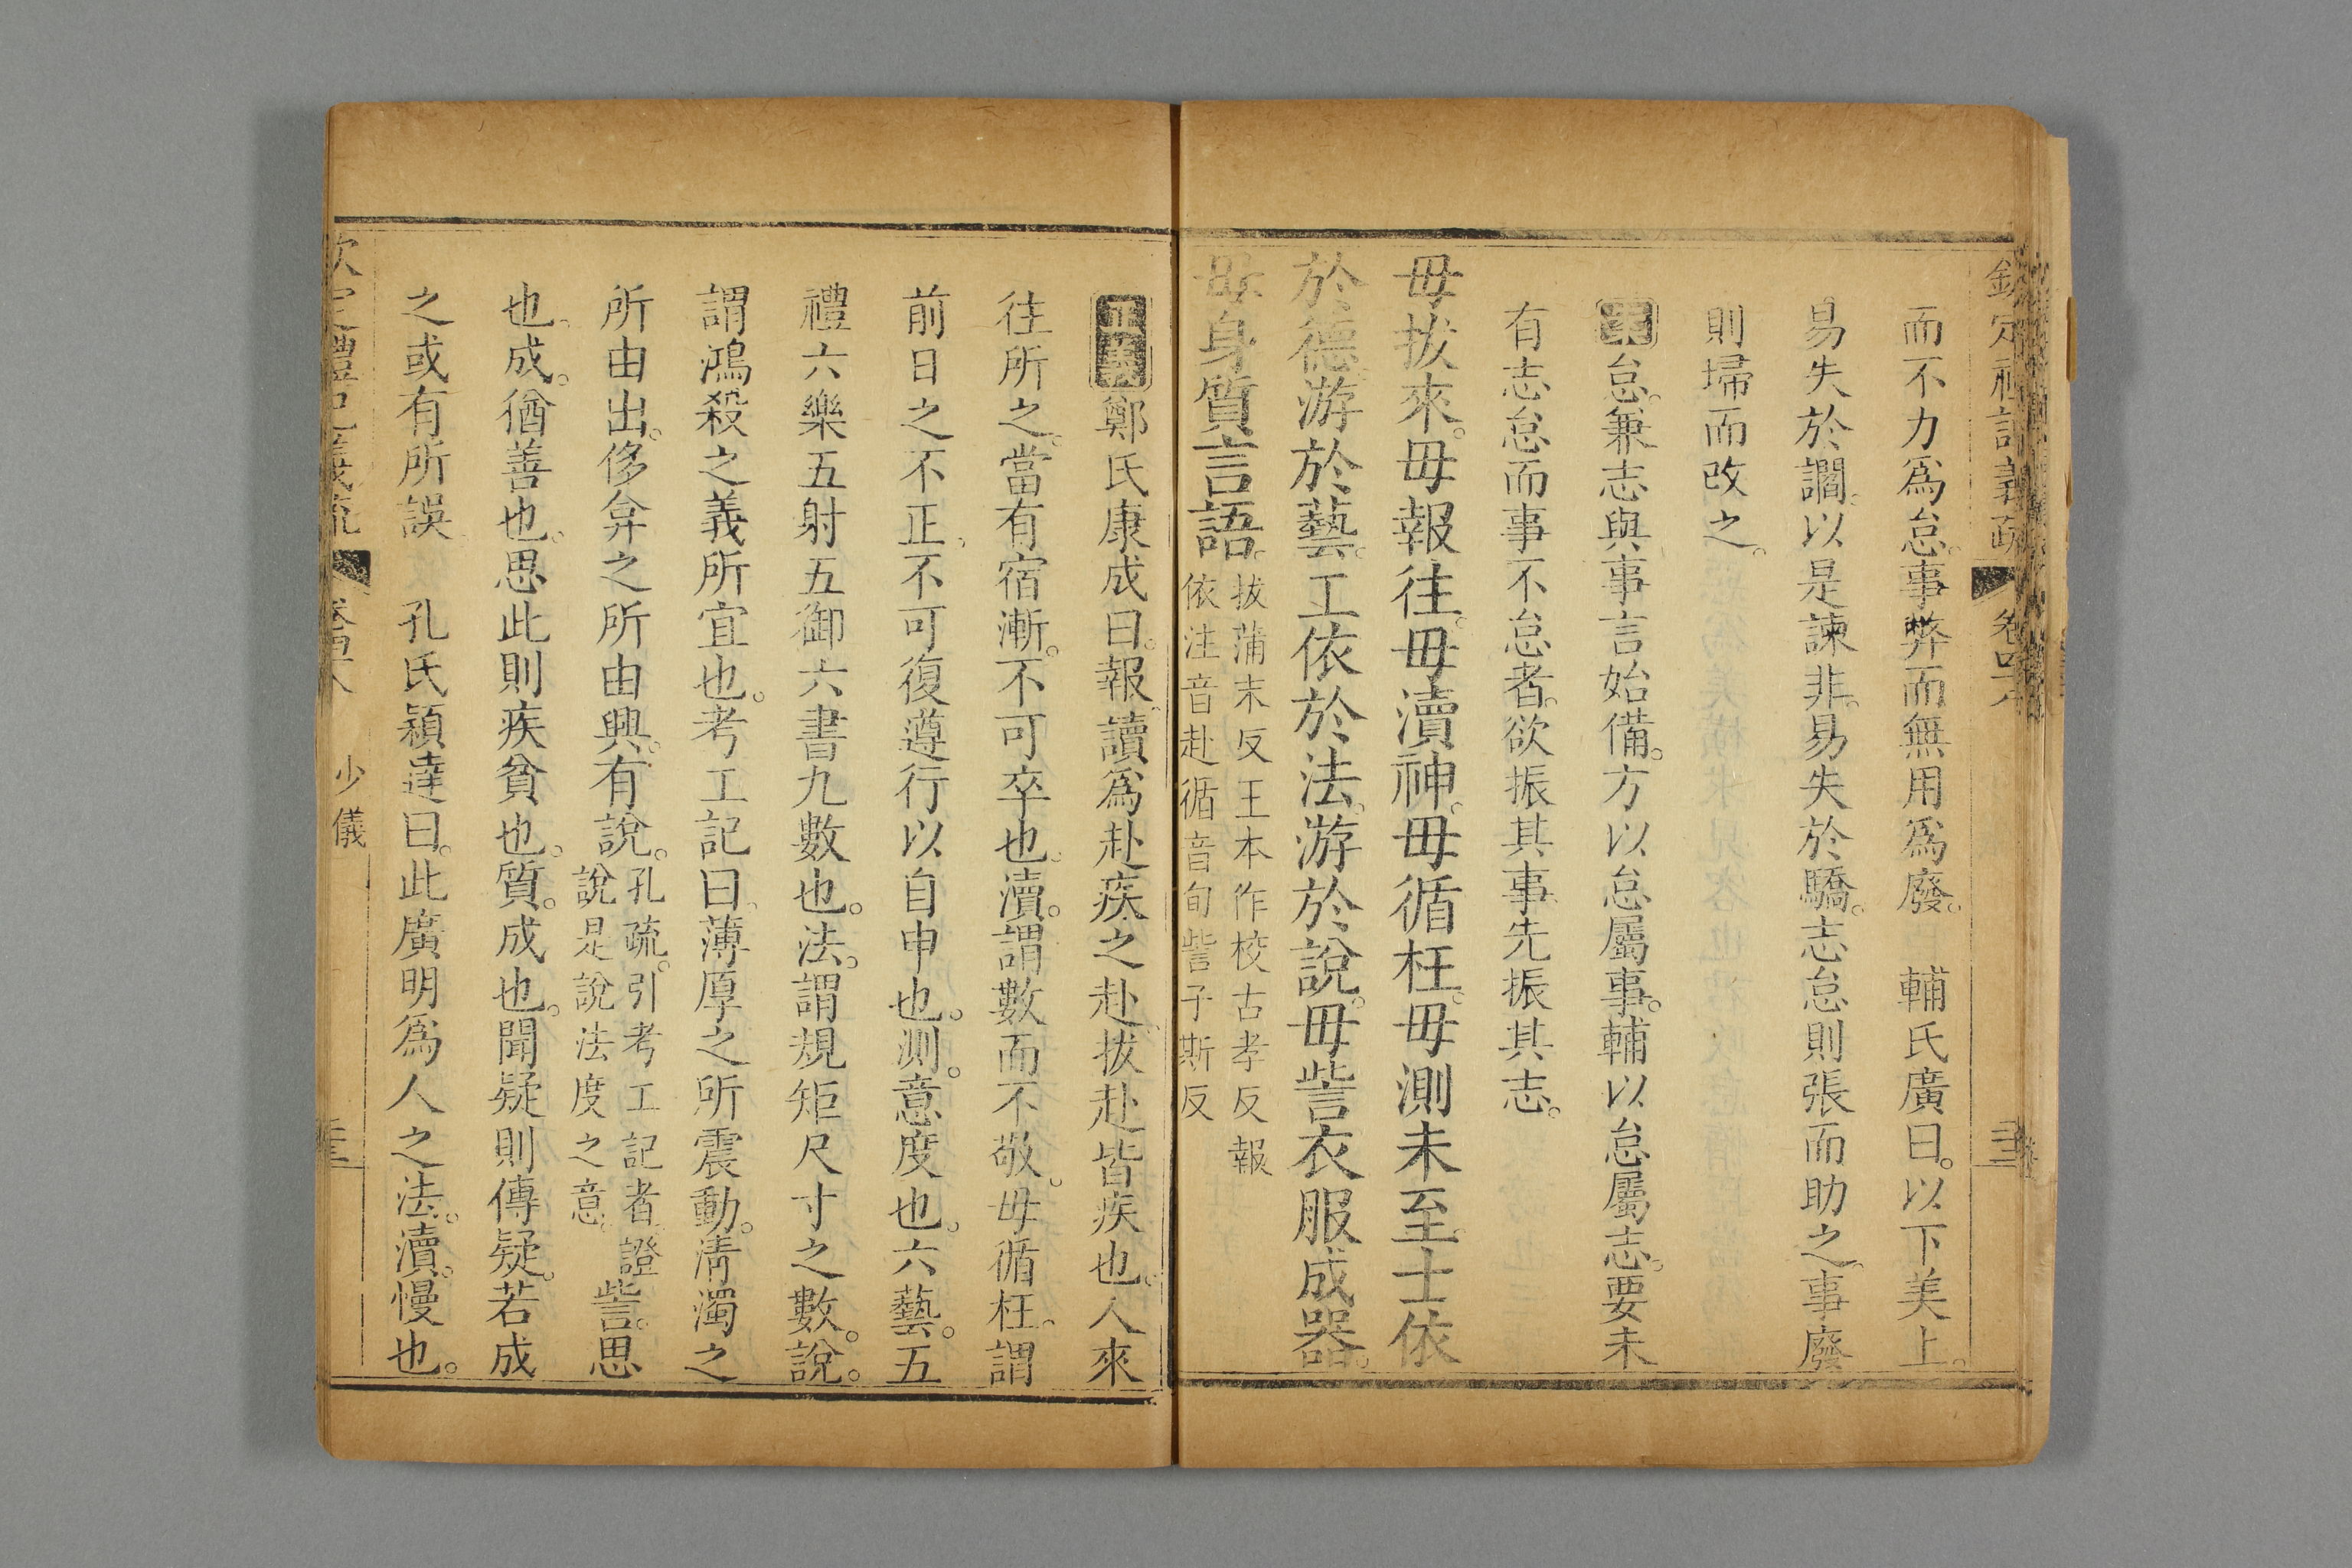 欽定禮記義疏 卷四十八
而不力爲怠。事弊而無用爲廢。 輔氏廣曰。以下美上。
易失於讇。以是諫非。易失於驕。志怠則張而助之。事廢
則埽而改之。
怠。兼志與事言始備。方以怠屬事。輔以怠屬志。要未
有志怠而事不怠者。欲振其事。先振其志。
毋拔來。毋報往。毋瀆神。毋循枉。毋測未至。士依
於德。游於藝。工依於法。游於說。毋訾衣服成器。
毋身質言語。
拔蒲末反王本作校古孝反報
依注音赴循音旬訾子斯反
正義鄭氏康成曰。報讀爲赴疾之赴。拔赴皆疾也。人來
往所之。當有宿漸。不可卒也。瀆。謂數而不敬。毋循枉。謂
前日之不正。不可復遵行以自申也。測。意度也。六藝。五
禮六樂五射五御六書九數也。法。謂規矩尺寸之數。說。
謂鴻殺之義所宜也。考工記曰。薄厚之所震動。清濁之
所由出。侈弇之所由興。有說。
孔疏。引考工記者。證
說是說法度之意。
訾。思
也。成。猶善也。思此則疾貧也。質。成也。聞疑則傳疑。若成
之或有所誤 孔氏穎達曰。此廣明爲人之法。瀆。慢也。
欽定禮記義疏 卷四十八 少儀